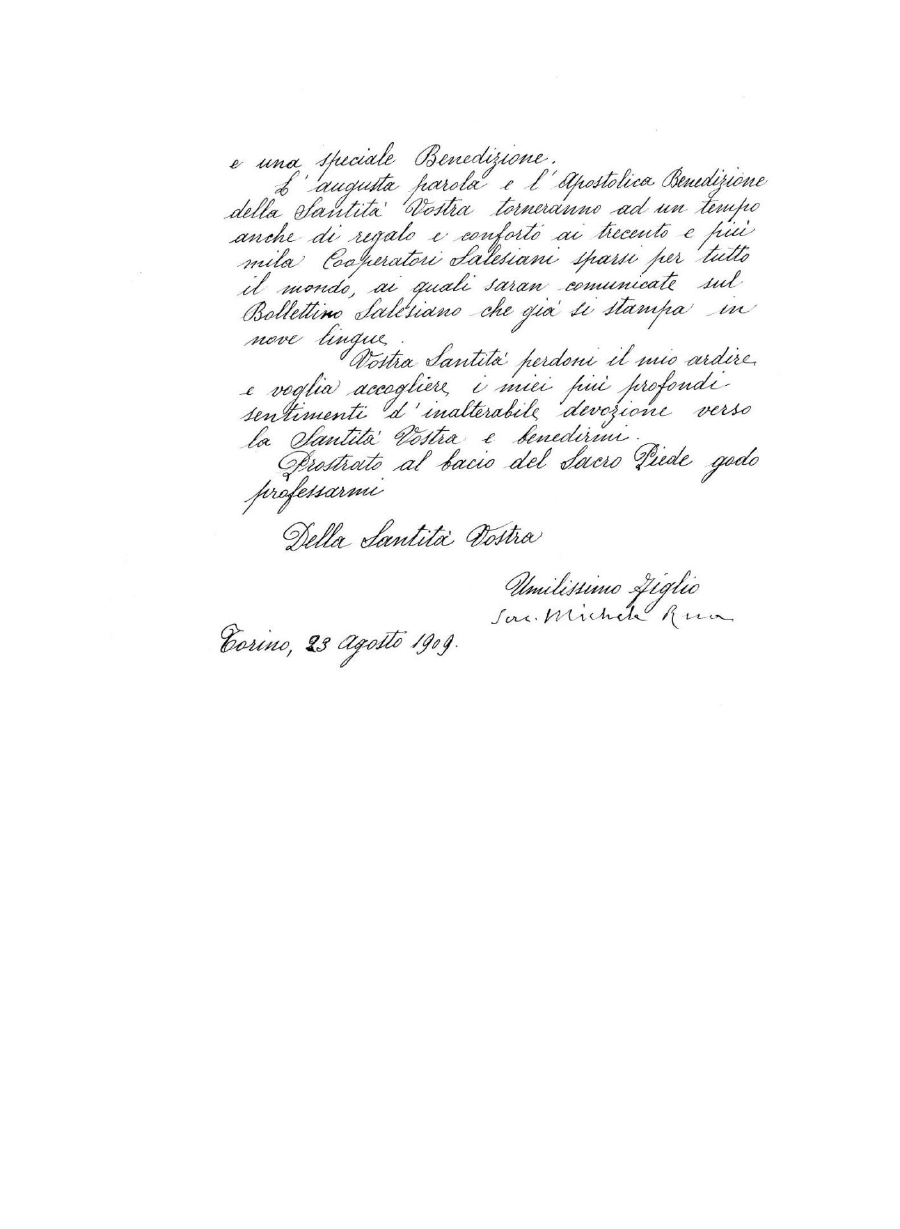 e una speciale Benedizione.
L'augusta parola e l'Apostolica Benedizione
della Santità Vostra torneranno ad un tempo
anche di regalo e conforto ai trecento e più
mila Cooperatori Salesiani sparsi per tutto
il mondo, ai quali saran comunicate sul
Bollettino Salesiano che già si stampa in
nove lingue.
Vostra Santità perdoni il mio ardire
e voglia accogliere i miei più profondi
sentimenti d'inalterabile devozione verso
la Santità Vostra e benedirmi.
Prostrato al bacio del Sacro Piede godo
professarmi
Della Santità Vostra
Umilissimo Figlio
Sac. Michele Rua
Torino, 23 Agosto 1909.